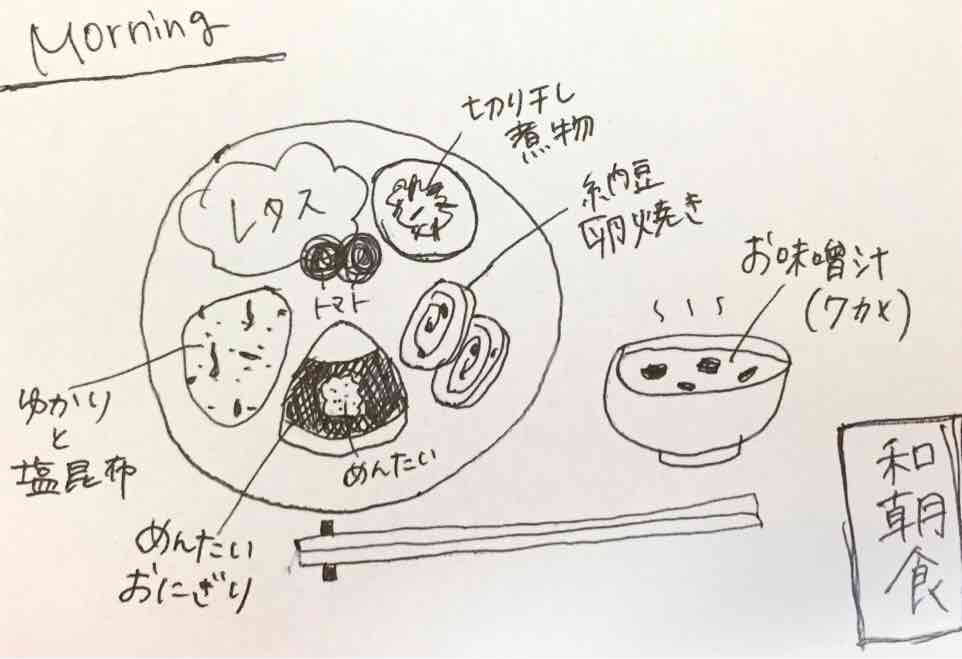 Morning
切り干し
煮物
納豆
卵焼き
レタス
トマト
お味噌汁
(ワカメ)
ゆかり
と
塩昆布
めんたい
めんたい
おにぎり
和朝食